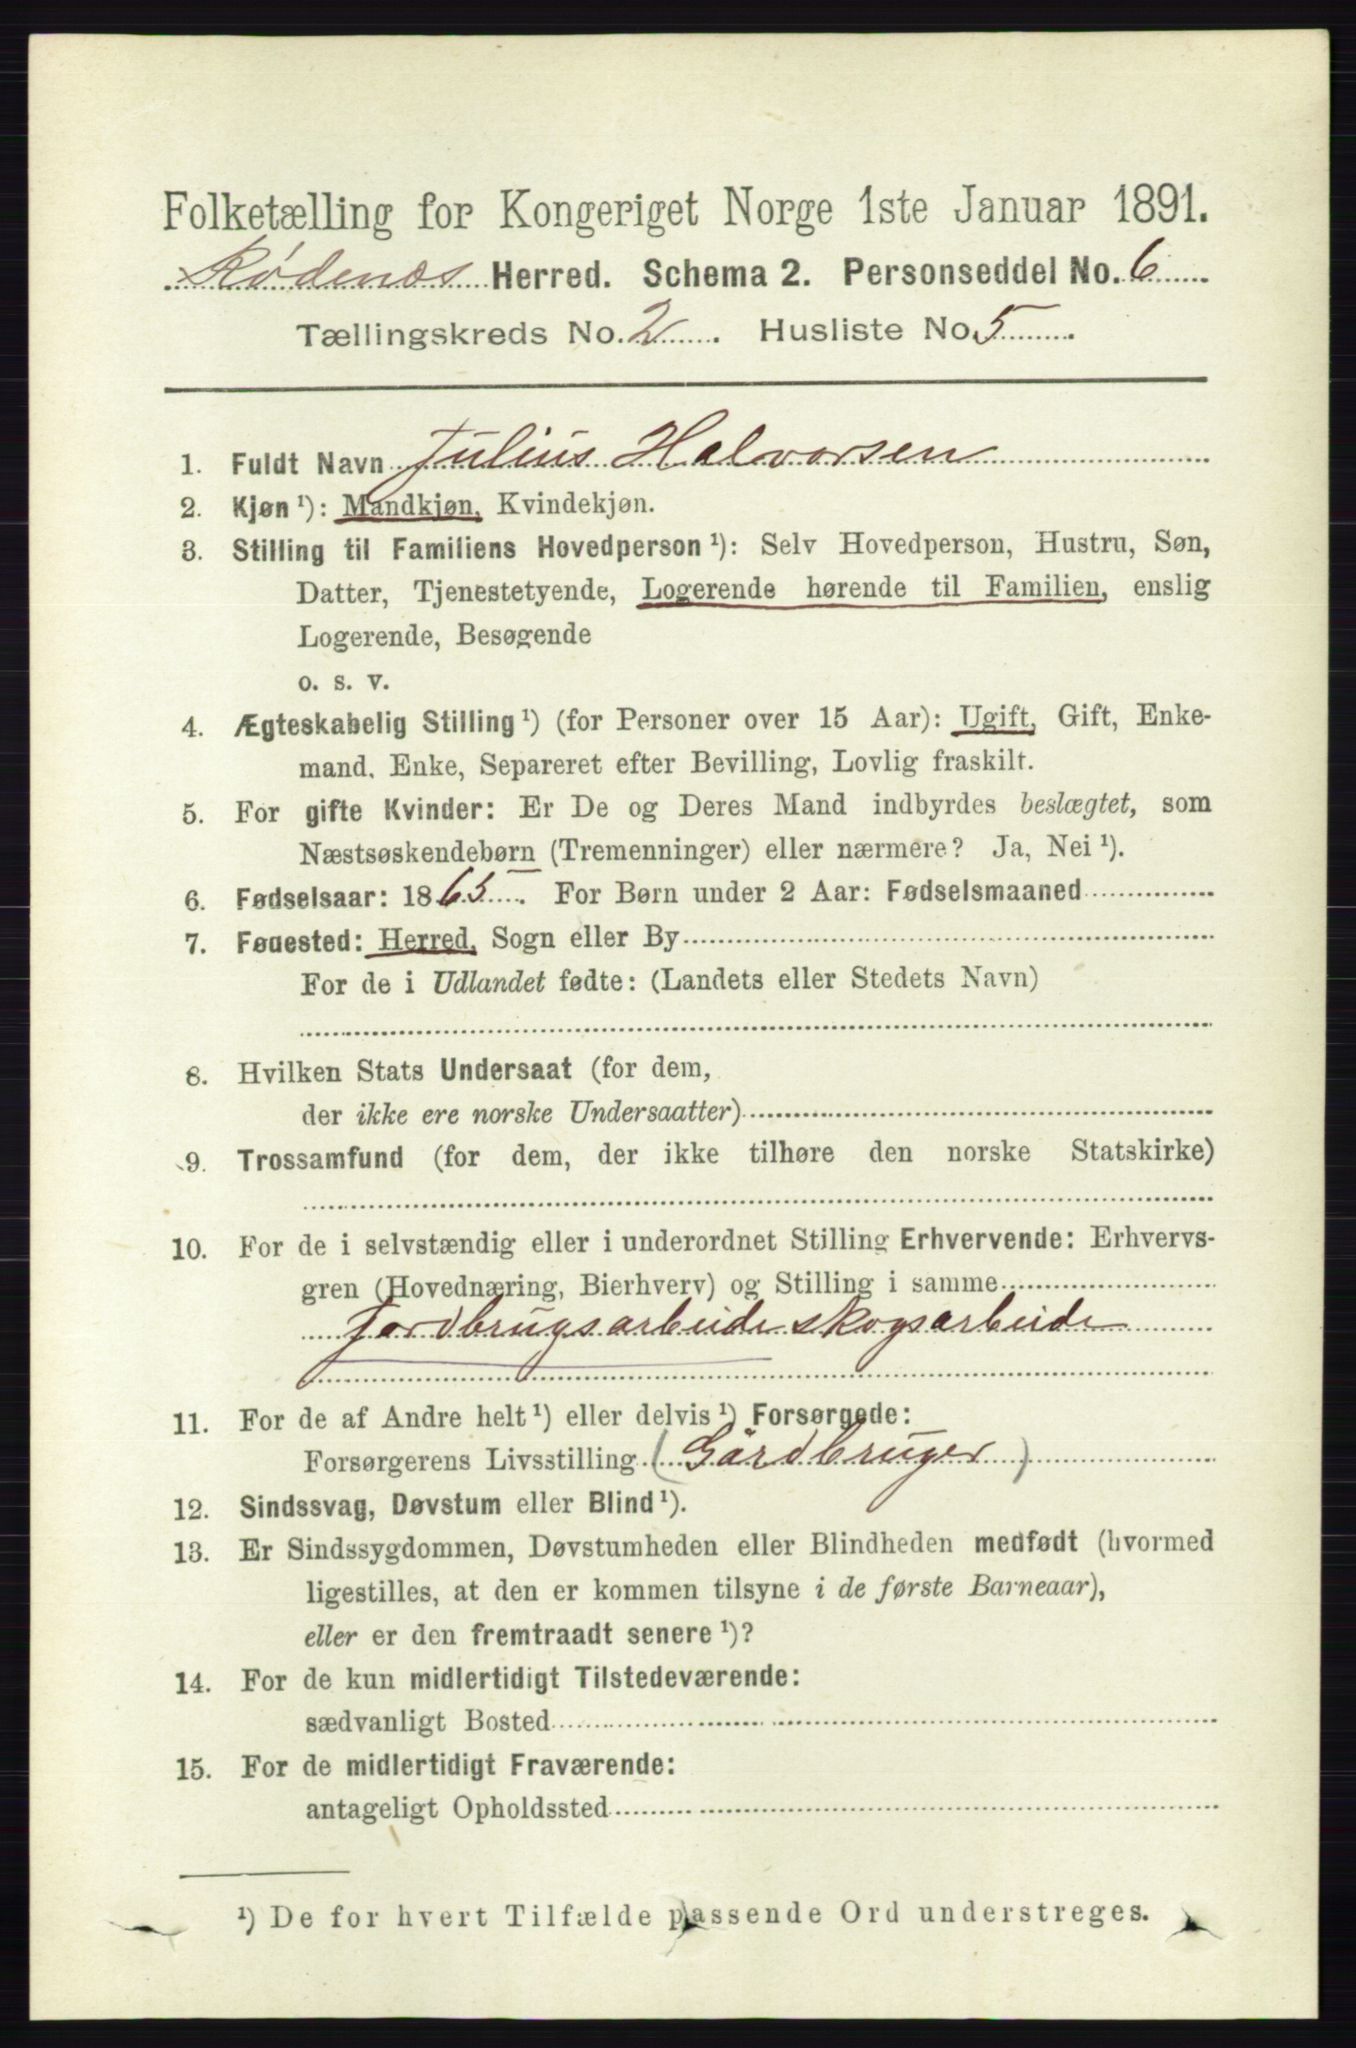 Folketælling for Kongeriget Norge 1ste Januar 1891.
Rødenæs Herred. Schema 2. Personseddel No. 6
Tællingskreds No. 2. Husliste No. 5.
1. Fuldt Navn Julius Halvorsen
2. Kjøn ¹): Mandkjøn, Kvindekjøn.
3. Stilling til Familiens Hovedperson ¹): Selv Hovedperson, Hustru, Søn,
Datter, Tjenestetyende, Logerende hørende til Familien, enslig
Logerende, Besøgende
o. s. v.
4. Ægteskabelig Stilling ¹) (for Personer over 15 Aar): Ugift, Gift, Enke-
mand, Enke, Separeret efter Bevilling, Lovlig fraskilt.
5. For gifte Kvinder: Er De og Deres Mand indbyrdes beslægtet, som
Næstsøskendebørn (Tremenninger) eller nærmere? Ja, Nei ¹).
6. Fødselsaar: 1865. For Børn under 2 Aar: Fødselsmaaned
7. Fødested: Herred, Sogn eller By
For de i Udlandet fødte: (Landets eller Stedets Navn)
8. Hvilken Stats Undersaat (for dem,
der ikke ere norske Undersaatter)
9. Trossamfund (for dem, der ikke tilhøre den norske Statskirke)
10. For de i selvstændig eller i underordnet Stilling Erhvervende: Erhvervs-
gren (Hovednæring, Bierhverv) og Stilling i samme
Jordbrugsarbeide skogsarbeide
11. For de af Andre helt ¹) eller delvis ¹) Forsørgede:
Forsørgerens Livsstilling (Gårdbruger)
12. Sindssvag, Døvstum eller Blind ¹).
13. Er Sindssygdommen, Døvstumheden eller Blindheden medfødt (hvormed
ligestilles, at den er kommen tilsyne i de første Barneaar),
eller er den fremtraadt senere ¹)?
14. For de kun midlertidigt Tilstedeværende:
sædvanligt Bosted
15. For de midlertidigt Fraværende:
antageligt Opholdssted
¹) De for hvert Tilfælde passende Ord understreges.